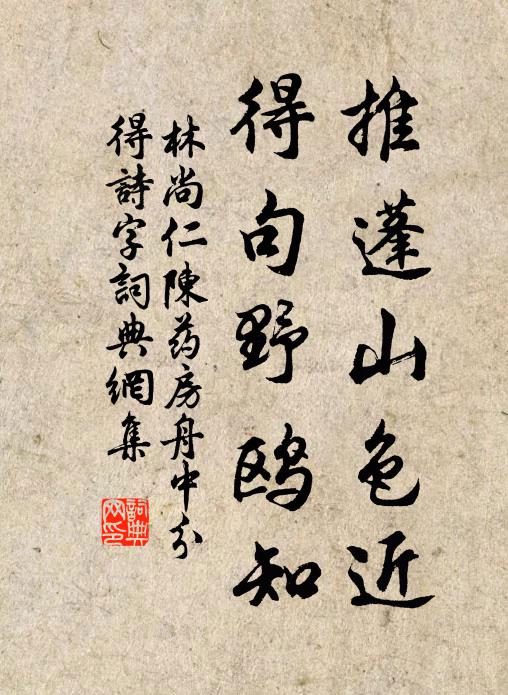 推蓬山色近
得句野鸥知
林尚仁陳药房舟中分
得詩字詞典網集
詞典
网印